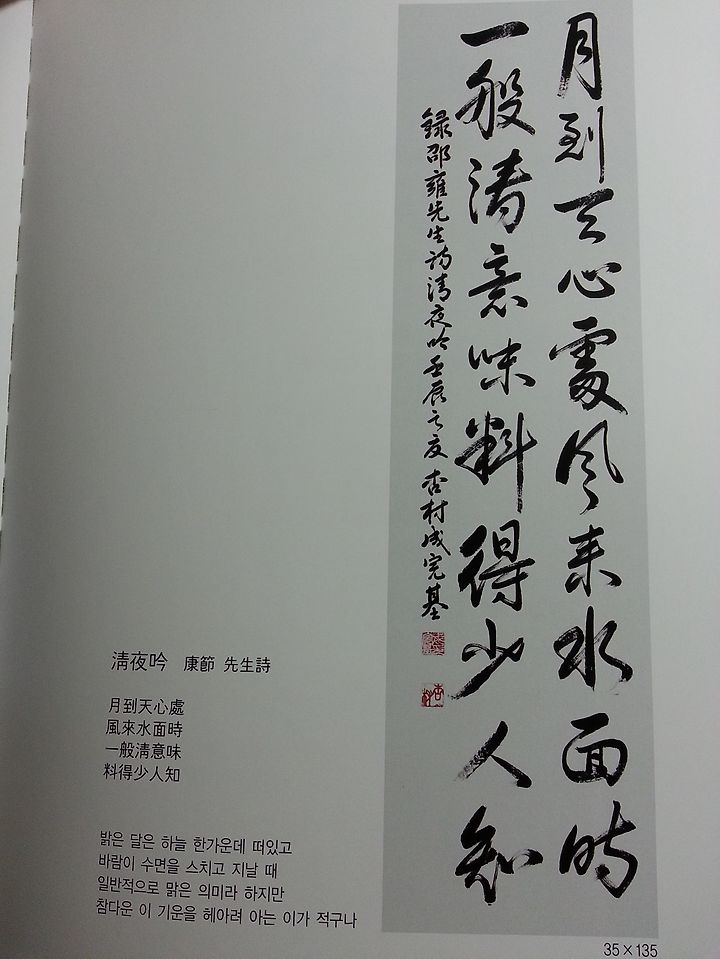 月到天心處風来水面時
一般清意味料得少人知
録邵雍先生詩清夜吟壬辰之夏 杏村成完基
淸夜吟 康節 先生詩
月到天心處
風來水面時
一般淸意味
料得少人知
밝은 달은 하늘 한가운데 떠있고
바람이 수면을 스치고 지날 때
일반적으로 맑은 의미라 하지만
참다운 이 기운을 헤아려 아는 이가 적구나
35×135